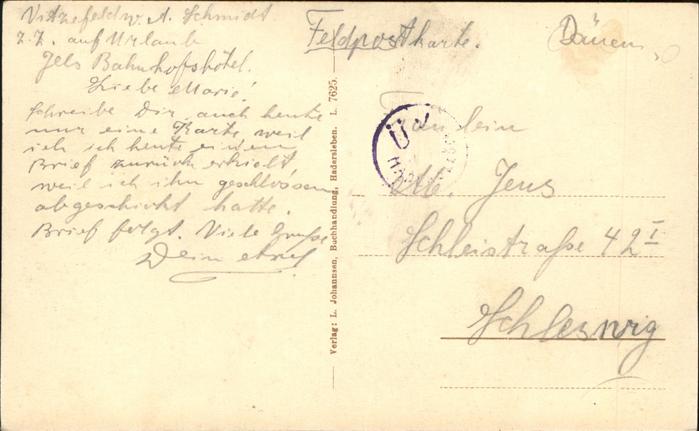 Vizefeldw. A. Schmidt
z.Z. auf Urlaub
Jels Bahnhofshotel.
Liebe Marie!
Schreibe Dir auch heute
nur eine Karte, weil
ich ich heute einen
Brief zurück erhielt,
weil ich ihn geschlossen
abgeschickt hatte.
Brief folgt. Viele Grüße
Dein
Verlag: L. Johannsen, Buchhandlung, Hadersleben. L. 7625.
Feldpostkarte.
Ü
Fräulein
Jens
Schleistraße 42 I
Schleswig